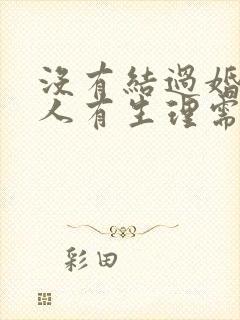 沒有結過婚
人有生理需
彩田